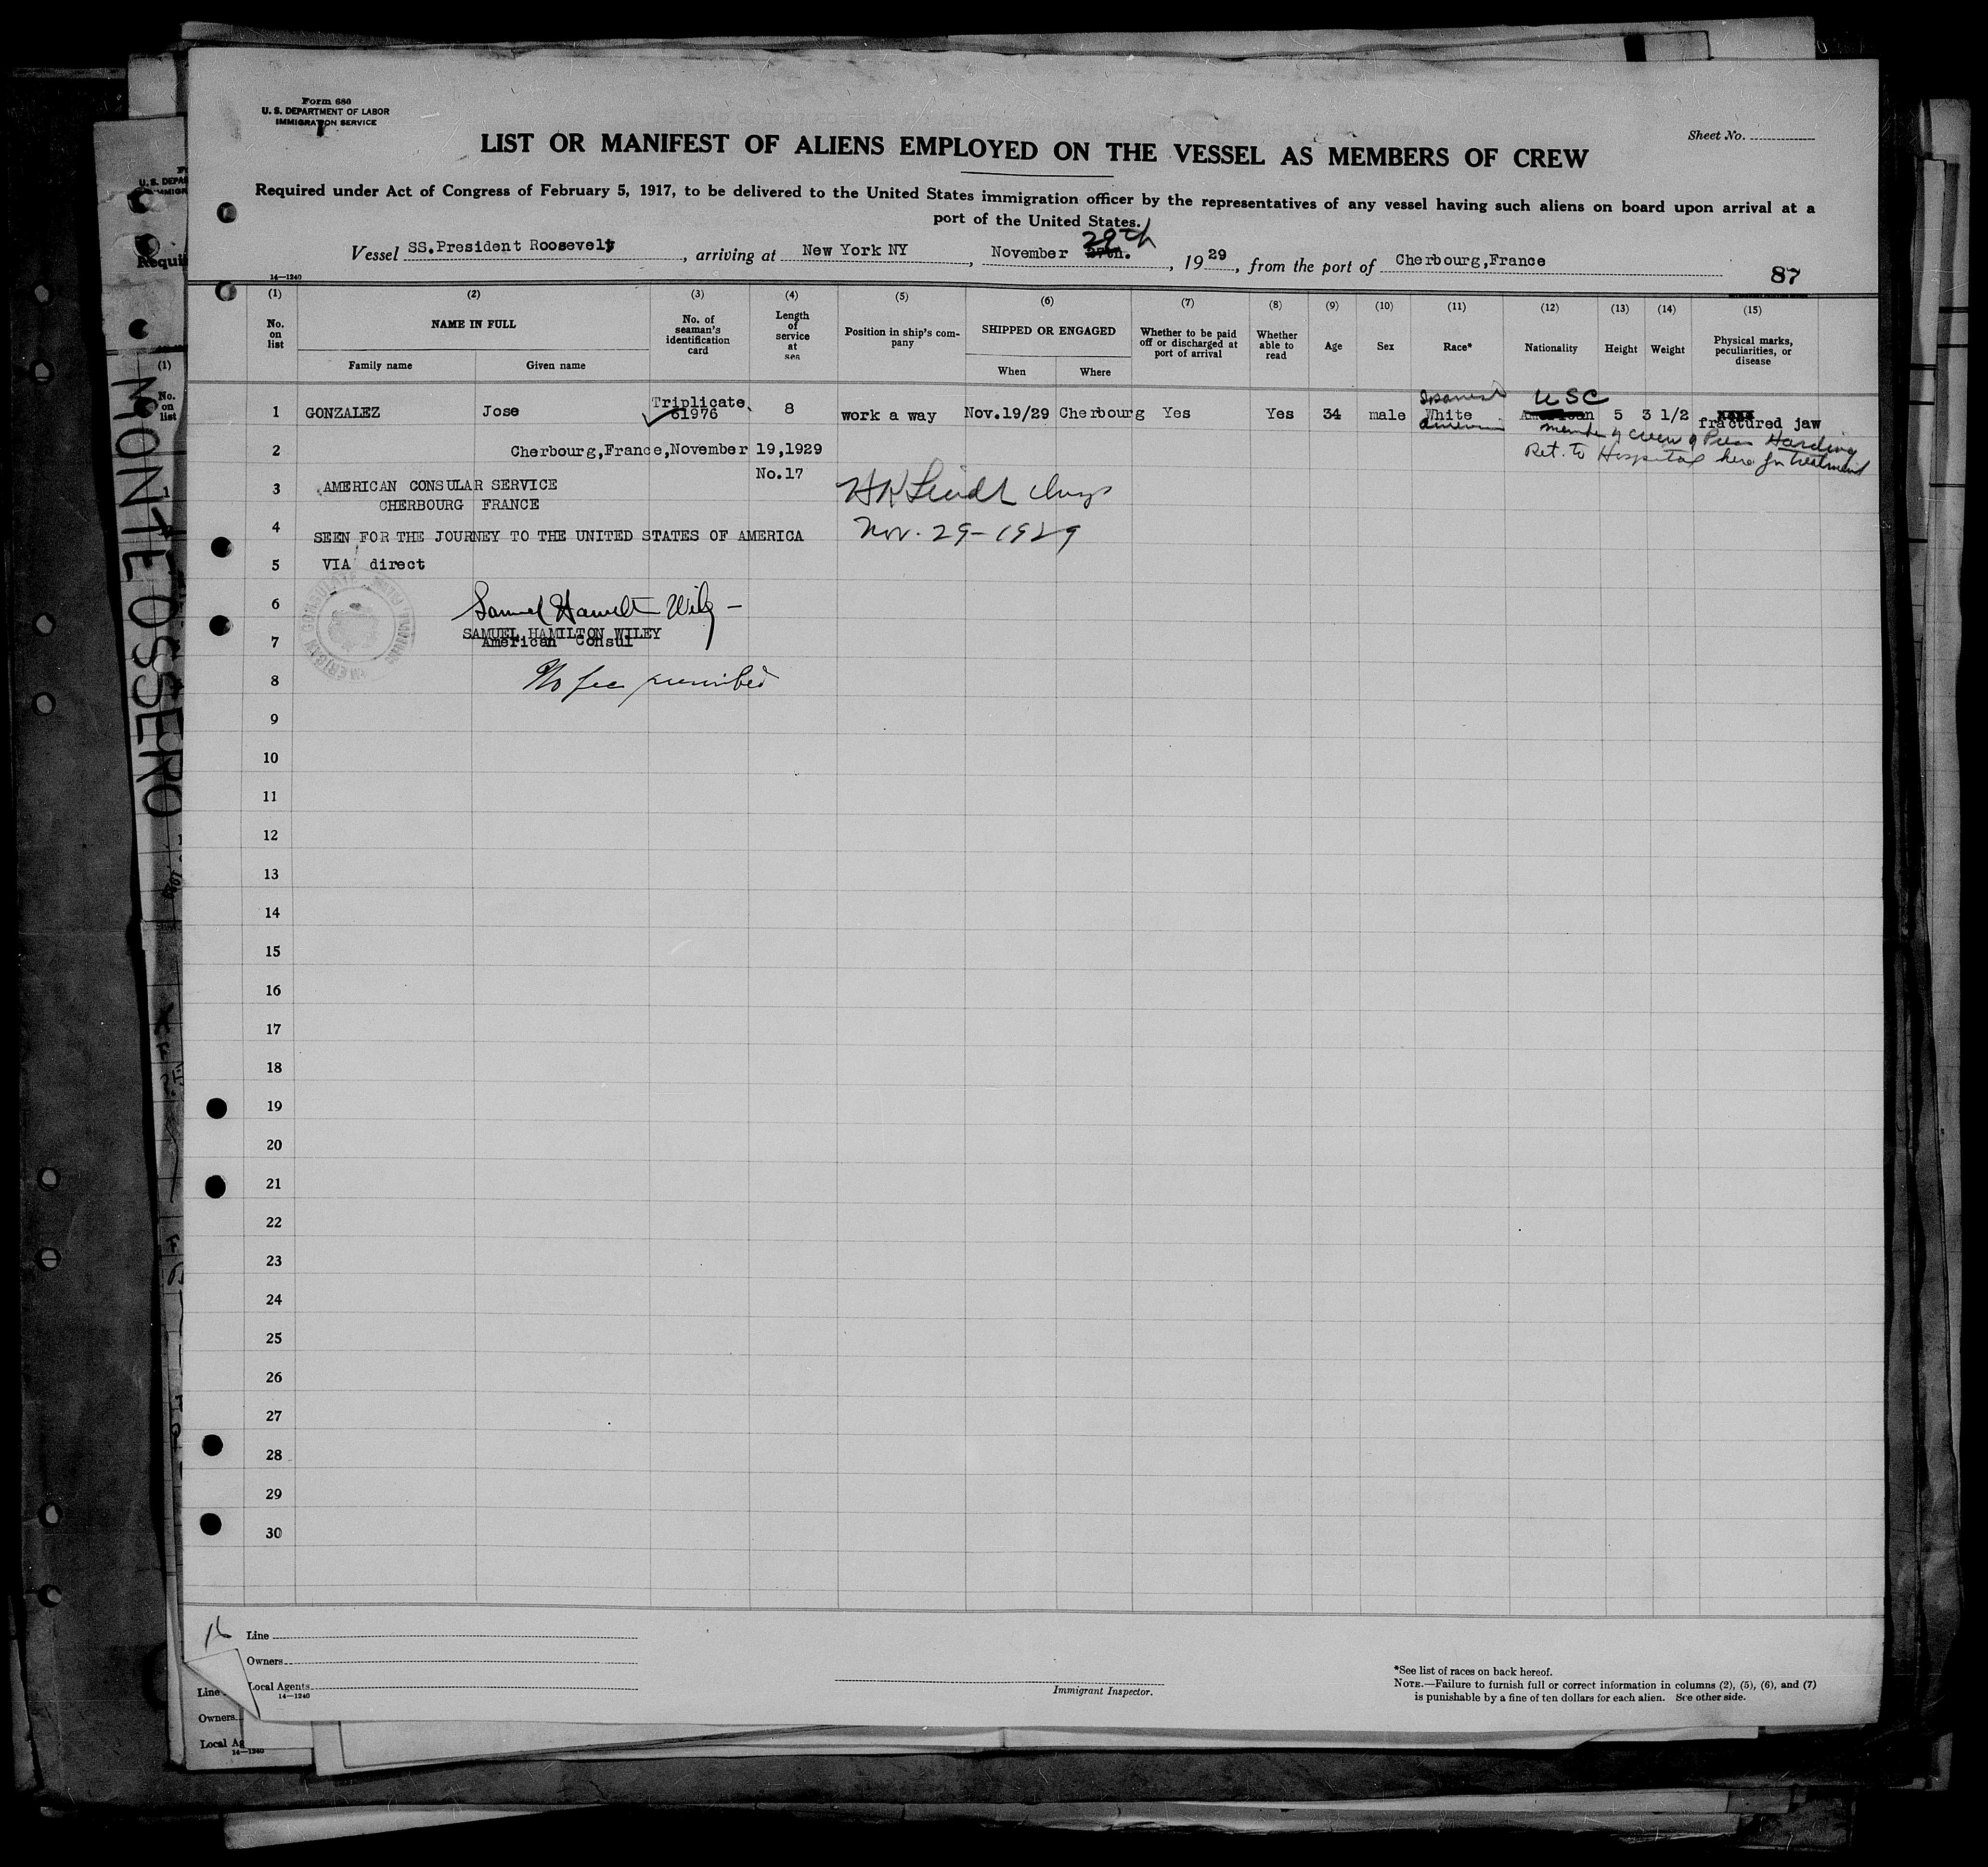 Form 680
U. S. DEPARTMENT OF LABOR
IMMIGRATION SERVICE
Sheet No.
LIST OR MANIFEST OF ALIENS EMPLOYED ON THE VESSEL AS MEMBERS OF CREW
Required under Act of Congress of February 5, 1917, to be delivered to the United States immigration officer by the representatives of any vessel having such aliens on board upon arrival at a
port of the United States.
29th
Vessel SS.President Roosevelt, arriving at New York NY, November 27th., 1929, from the port of Cherbourg,France
14—1240
87
(1) (2) (3) (4) (5) (6) (7) (8) (9) (10) (11) (12) (13) (14) (15)
No. on list
NAME IN FULL
Family name Given name
No. of seaman's identification card
Length of service at sea
Position in ship's company
SHIPPED OR ENGAGED
When Where
Whether to be paid off or discharged at port of arrival
Whether able to read
Age
Sex
Race*
Nationality
Height
Weight
Physical marks, peculiarities, or disease
Triplicate Spanish USC
1 GONZALEZ Jose 61976 8 work a way Nov.19/29 Cherbourg Yes Yes 34 male White American 5 3 1/2 fractured jaw
member of crew of Pres Harding
2 Cherbourg,France,November 19,1929
Ret. to Hospital here for treatment
No.17
3 AMERICAN CONSULAR SERVICE
CHERBOURG FRANCE
4
Nov. 29-1929
SEEN FOR THE JOURNEY TO THE UNITED STATES OF AMERICA
5 VIA direct
6 Samuel Hamilton Wiley
SAMUEL HAMILTON WILEY
7 American Consul
8 No fee prescribed
9
10
11
12
13
14
15
16
17
18
19
20
21
22
23
24
25
26
27
28
29
30
Line
Owners
Local Agents
14—1240
Immigrant Inspector.
*See list of races on back hereof.
NOTE.—Failure to furnish full or correct information in columns (2), (5), (6), and (7)
is punishable by a fine of ten dollars for each alien. See other side.
MONTE OSSERO
(1)
No.
on
list
Line
Owners
Local Ag
14—1240